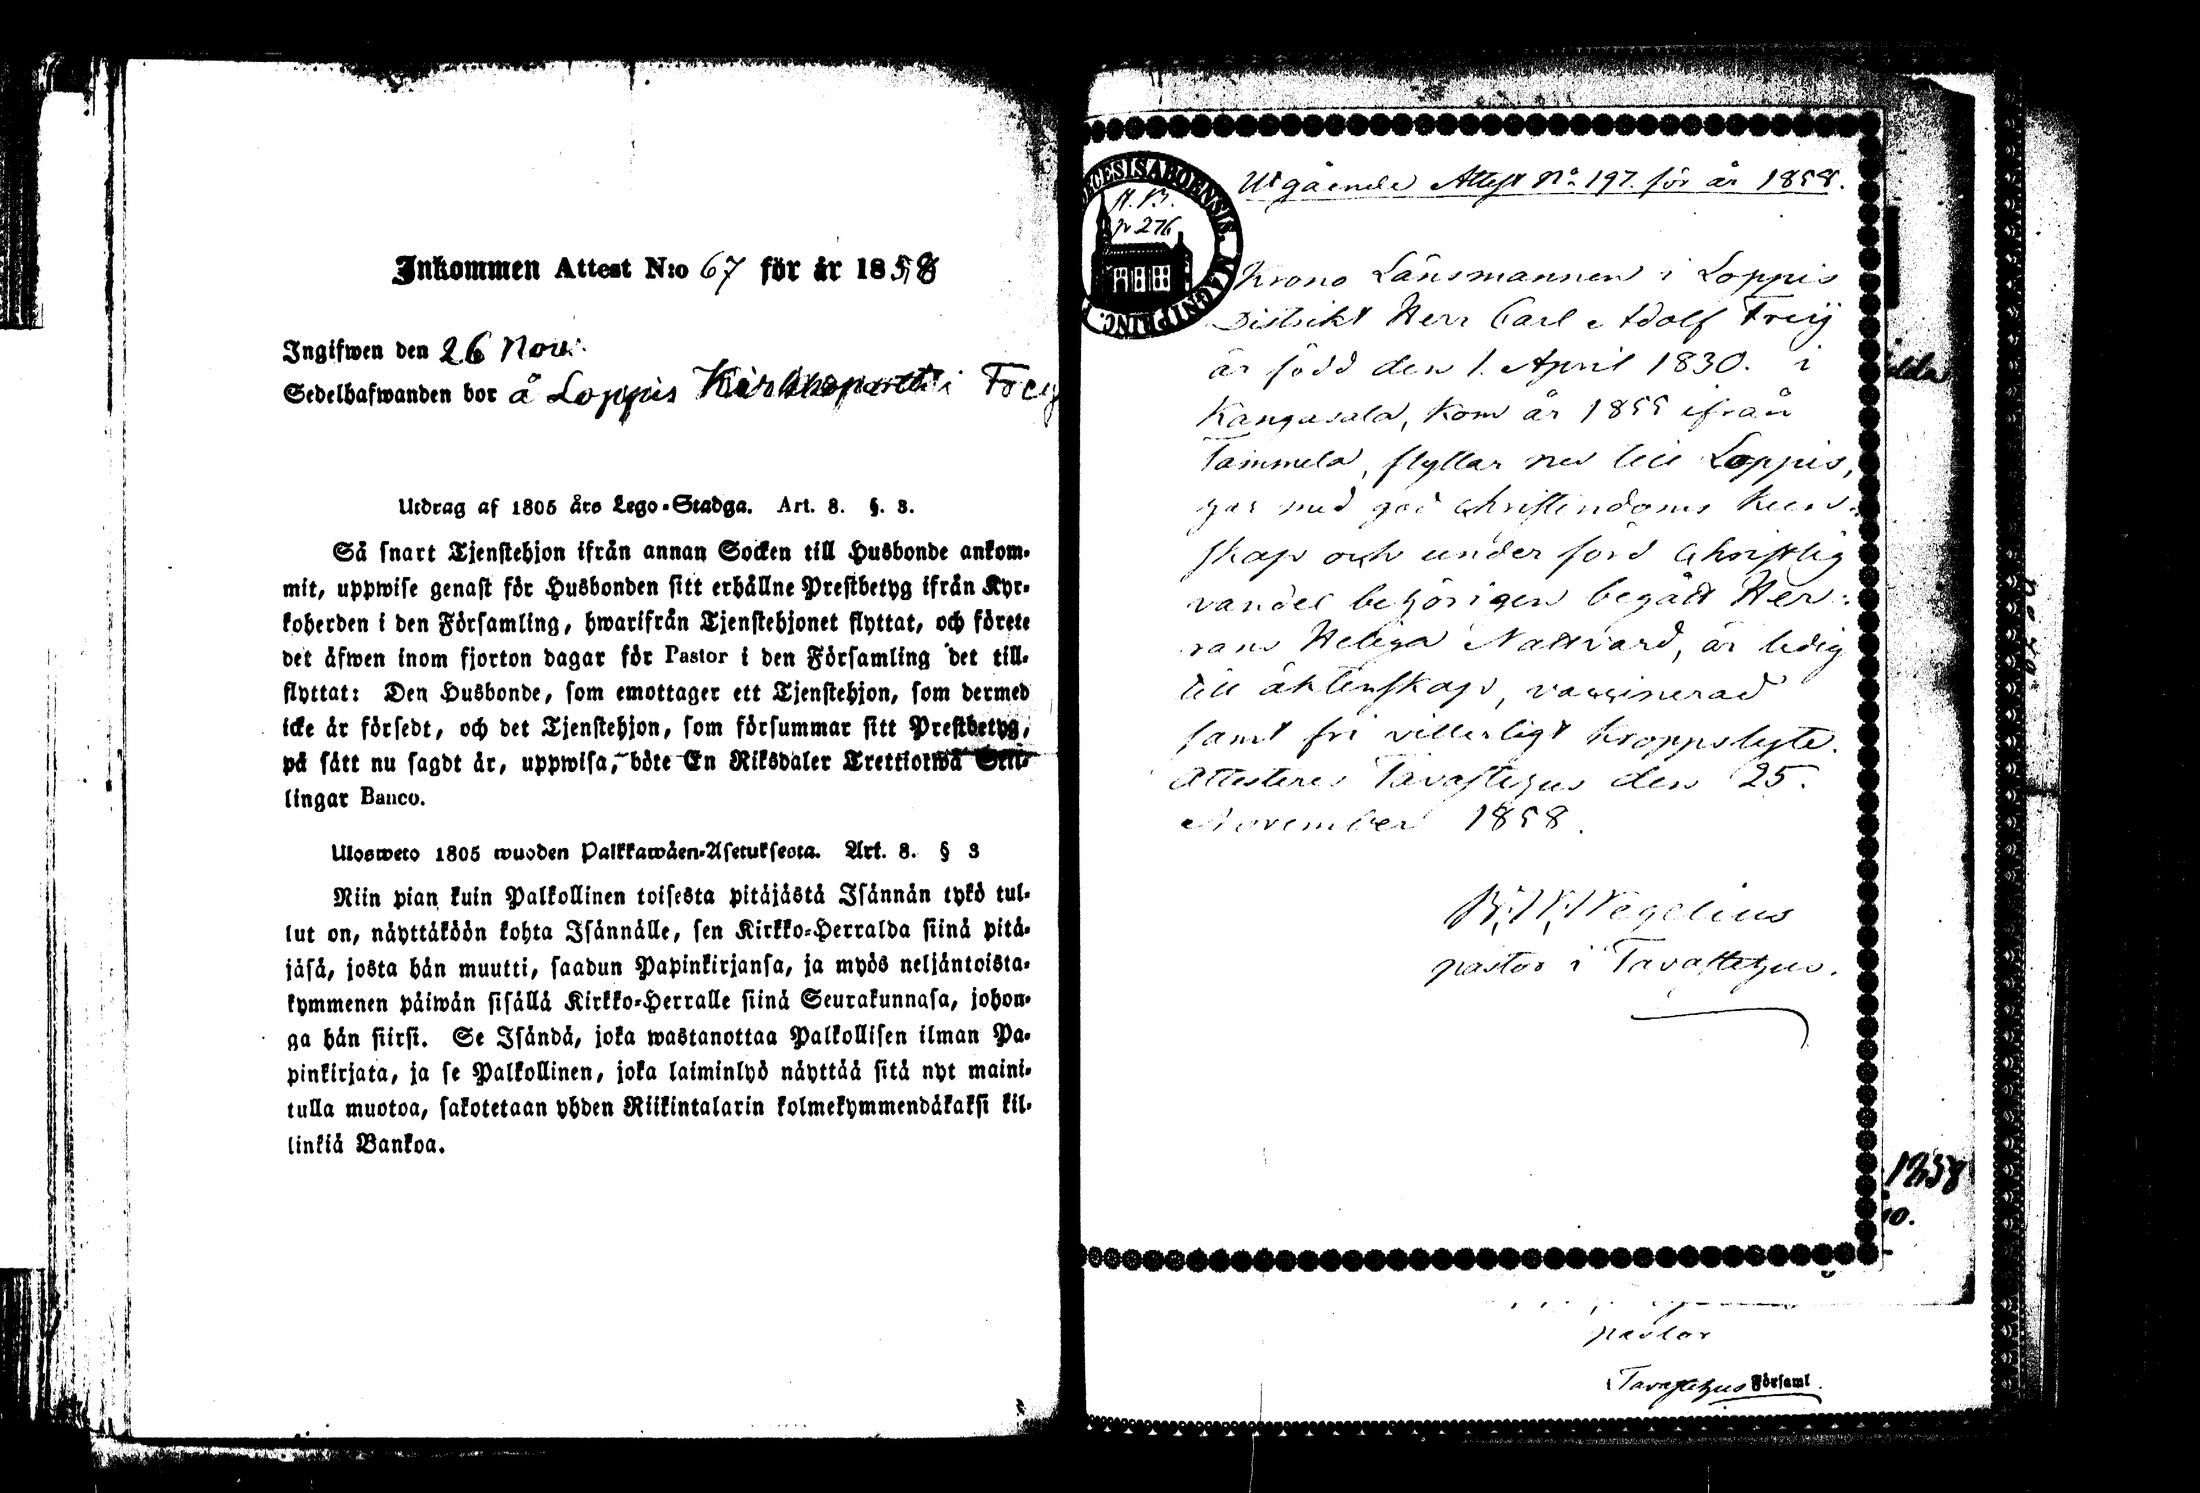 Inkommen Attest N:o 67 för år 1858
Ingifwen den 26 Nov.
Sedelhafwanden bor å Loppis Frey
Utdrag af 1805 års Lego-Stadga. Art. 8. §. 3.
Så snart Tjenstehjon ifrån annan Socken till Husbonde ankom-
mit, uppwise genast för Husbonden sitt erhållne Prestbetyg ifrån Kyr-
koherden i den Församling, hwarifrån Tjenstehjonet flyttat, och förete
det äfwen inom fjorton dagar för Pastor i den Församling det till-
flyttat: Den Husbonde, som emottager ett Tjenstehjon, som dermed
icke är försedt, och det Tjenstehjon, som försummar sitt Prestbetyg,
på sätt nu sagdt är, uppwisa, böte En Riksdaler Trettiotwå Skil-
lingar Banco.
Ulosweto 1805 wuoden Palkkawäen-Asetuksesta. Art. 8. § 3
Niin pian kuin Palkollinen toisesta pitäjästä Isännän tykö tul-
lut on, näyttäköön kohta Isännälle, sen Kirkko-Herralda siinä pitä-
jäsä, josta hän muutti, saadun Papinkirjansa, ja myös neljäntoista-
kymmenen päiwän sisällä Kirkko-Herralle siinä Seurakunnasa, johon-
ga hän siirsi. Se Isändä, joka wastanottaa Palkollisen ilman Pa-
pinkirjata, ja se Palkollinen, joka laiminlyö näyttää sitä nyt maini-
tulla muotoa, sakotetaan yhden Riikintalarin kolmekymmendäkaksi kil-
linkiä Bankoa.
Utgående Attest No 197. för år 1858.
ECESIS ABOENSIS. MAGNI PRINC.
p 276
Krono Länsmannen i Loppis
Distrikt Herr Carl Adolf Freÿ
är född den 1. April 1830. i
Kangasala, kom år 1855 ifrån
Tammela, flyttar nu till Loppis,
har med god Christendoms kun-
skap och under förd Christlig
vandel behörigen begått Her-
rans Heliga Nattvard, är ledig
till äktenskap, vaccinerad
samt fri villerligt kroppslyte.
Attesteres Tavastehus den 25.
November 1858.
B. W. Wegelius
pastor i Tavastehus.
1858
10.
pastor
Tavastehus Församl.